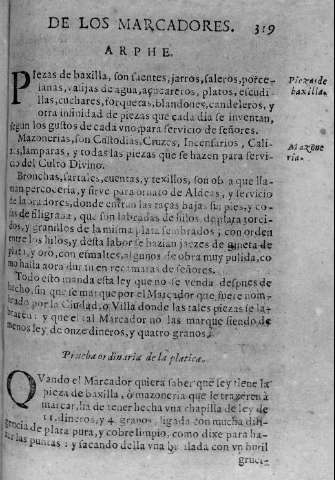 DE LOS MARCADORES. 319
ARPHE.
PIezas de baxilla, son fuentes, jarros, saleros, porce-
lanas, valijas de agua, açucareros, platos, escudi-
llas, cuchares, forquetas, blandones, candeleros, y
otra infinidad de piezas que cada dia se inventan,
segun los gustos de cada vno, para servicio de señores.
Pieza de
baxilla.
Mazonerias, son Custodias, Cruzes, Incensarios, Cali-
zes, lamparas, y todas las piezas que se hazen para servi-
cio del Culto Divino.
Mazone
ria.
Bronchas, sartales, cuentas, y textillos, son obra que lla-
man percoceria, y sirve para ornato de Aldeas, y servicio
de labradores, donde entran las taças bajas sin pies, y co-
sas de filigrana, que son labradas de hilos de plata torci-
dos, y granillos de la misma plata sembrados; con orden
entre los hilos, y desta labor se hazian jaezes de gineta de
plata, y oro, con esmaltes, algunos de obra muy pulida, co
mo halla aora duran en recamaras de señores.
Todo esto manda esta ley que no se venda despues de
hecho, sin que se marque por el Marcador que fuere nom-
brado por la Ciudad, o Villa donde las tales piezas se la-
braren: y que el tal Marcador no las marque siendo de
menos ley de onze dineros, y quatro granos.
Prueba ordinaria de la platica.
QVando el Marcador quiera saber que ley tiene la
pieza de baxilla, ò mazoneria que le traxeren à
marcar, ha de tener hecha vna chapilla de ley de
11. dineros, y 4. granos, ligada con mucha dili-
gencia de plata pura, y cobre limpio, como dixe para ha-
zer las puntas: y sacando della vna con vn buril